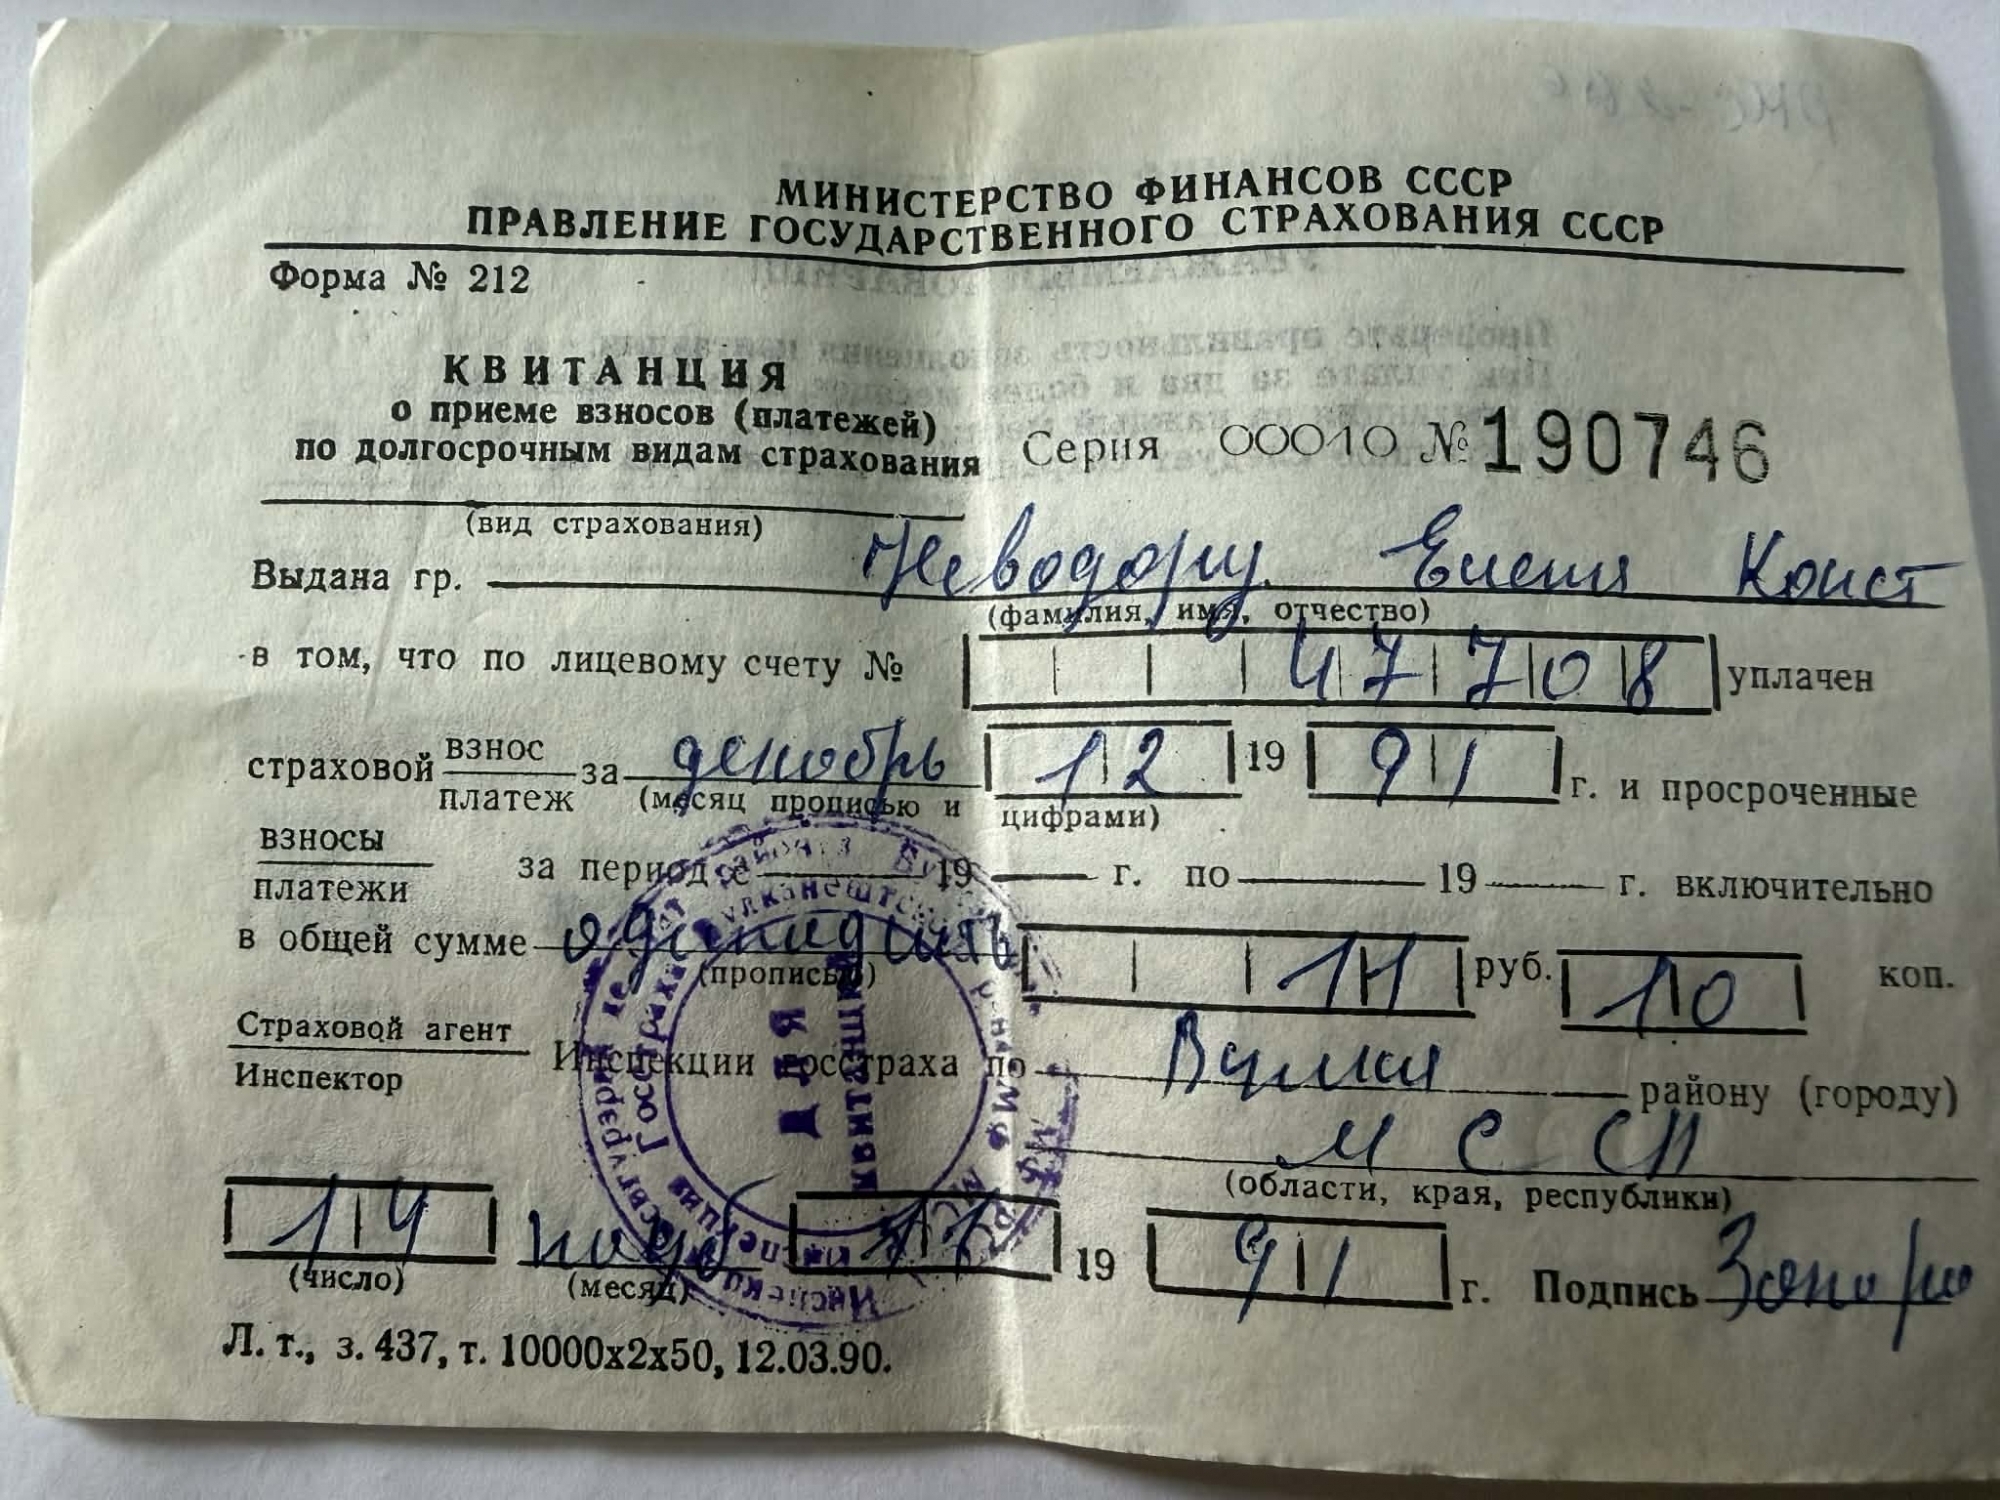 МИНИСТЕРСТВО ФИНАНСОВ СССР
ПРАВЛЕНИЕ ГОСУДАРСТВЕННОГО СТРАХОВАНИЯ СССР
Форма № 212
КВИТАНЦИЯ
о приеме взносов (платежей)
по долгосрочным видам страхования
Серия 00010 № 190746
(вид страхования)
Выдана гр. Елена Конст
(фамилия, имя, отчество)
в том, что по лицевому счету № 47708 уплачен
страховой взнос за декабрь 12 19 91 г. и просроченные
платеж (месяц прописью и цифрами)
взносы
платежи
за период с 19 г. по 19 г. включительно
в общей сумме одиннадцать 11 руб. 10 коп.
(прописью)
Страховой агент
Инспектор
Инспекции госстраха по Вулкан району (городу)
М С С Р
(области, края, республики)
14 нояб 11 19 91 г. Подпись
(число) (месяц)
Л. т., з. 437, т. 10000х2х50, 12.03.90.
ДЛЯ
квитанций